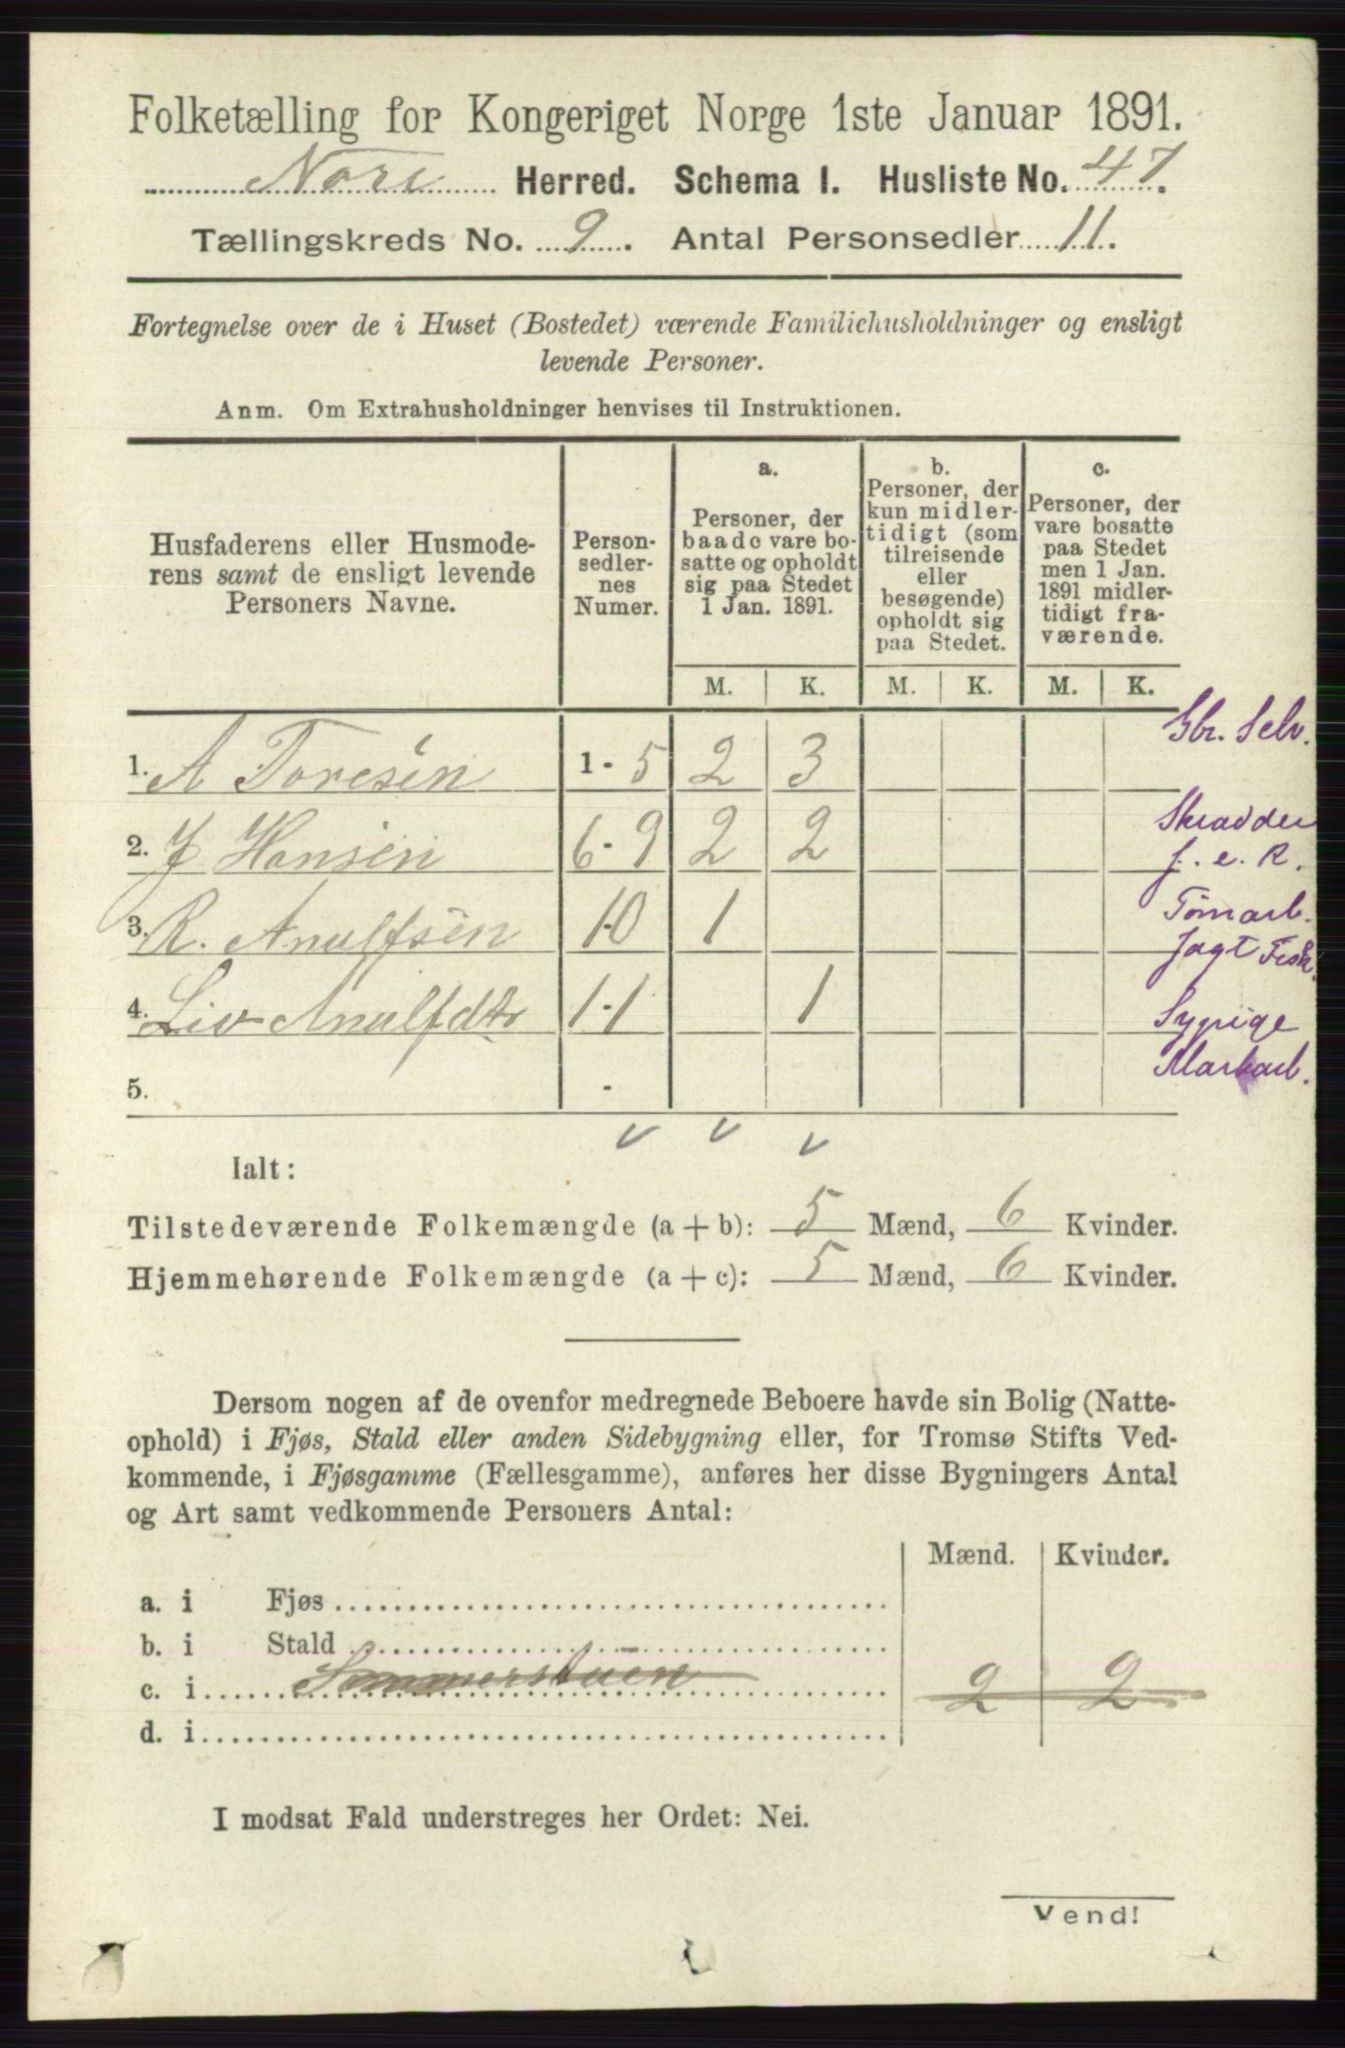 Folketælling for Kongeriget Norge 1ste Januar 1891.
Nore Herred. Schema I. Husliste No. 47.
Tællingskreds No. 9. Antal Personsedler 11.
Fortegnelse over de i Huset (Bostedet) værende Familiehusholdninger og ensligt
levende Personer.
Anm. Om Extrahusholdninger henvises til Instruktionen.
Husfaderens eller Husmode-
rens samt de ensligt levende
Personers Navne.
Person-
sedler-
nes
Numer.
a.
Personer, der
baade vare bo-
satte og opholdt
sig paa Stedet
1 Jan. 1891.
b.
Personer, der
kun midler-
tidigt (som
tilreisende
eller
besøgende)
opholdt sig
paa Stedet.
c.
Personer, der
vare bosatte
paa Stedet
men 1 Jan.
1891 midler-
tidigt fra-
værende.
M. K. M. K. M. K.
Gbr. Selv.
1. A Toresen 1-5 2 3
Skrædder
2. J Hansen 6-9 2 2
f. e. R.
3. R. Anulfsen 10 1
Tømarb.
Jagt Fisk.
4. Liv Anulfdtr 11 1
Sypige
Markarb.
5. -
Ialt:
Tilstedeværende Folkemængde (a + b): 5 Mænd, 6 Kvinder.
Hjemmehørende Folkemængde (a + c): 5 Mænd, 6 Kvinder.
Dersom nogen af de ovenfor medregnede Beboere havde sin Bolig (Natte-
ophold) i Fjøs, Stald eller anden Sidebygning eller, for Tromsø Stifts Ved-
kommende, i Fjøsgamme (Fællesgamme), anføres her disse Bygningers Antal
og Art samt vedkommende Personers Antal:
Mænd. Kvinder.
a. i Fjøs
b. i Stald
c. i Sommerstuen 2 2
d. i
I modsat Fald understreges her Ordet: Nei.
Vend!